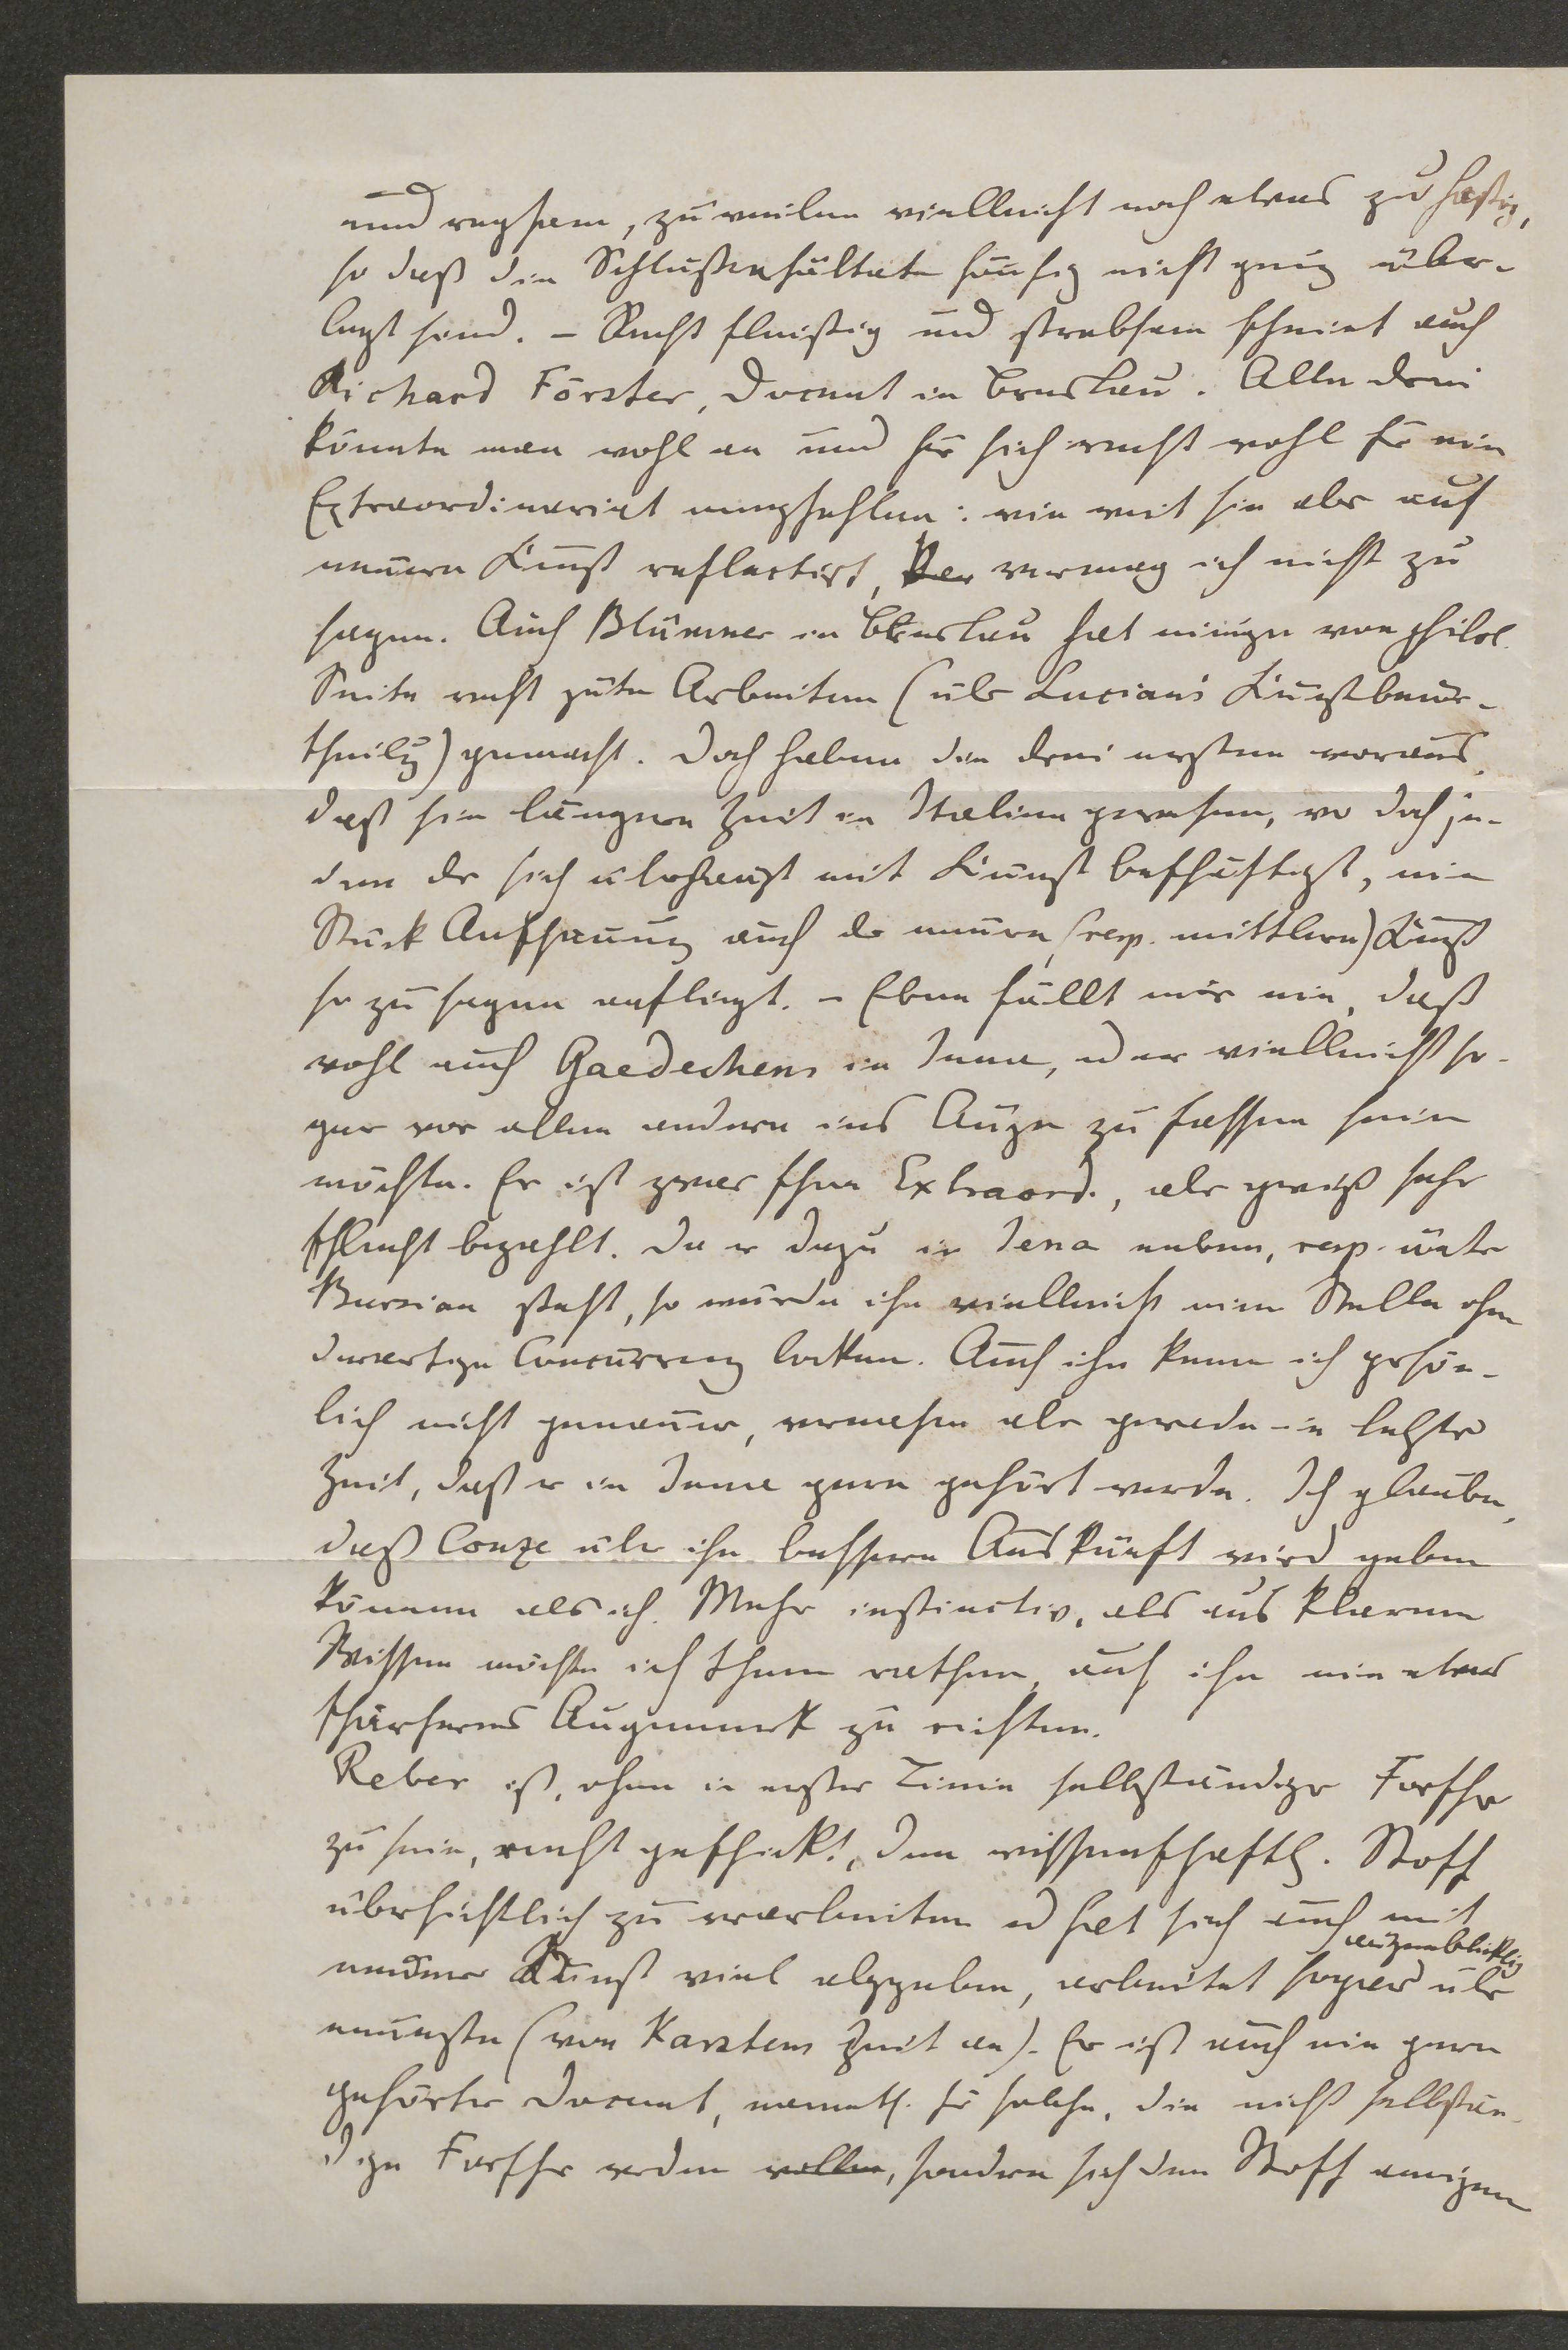 und regsam, zuweilen vielleicht noch etwas zu hastig,
so daß die Schlußresultate häufig nicht genug über-
legt sind. – Recht fleißig und strebsam scheint auch
Richard Förster, Docent in Breslau. Alle drei
könnte man wohl an und für sich recht wohl für ein
Extraordinariat empfehlen: wie weit sie aber auf
neuere Kunst reflectirt, vermag ich nicht zu
sagen. Auch Blümner in Breslau hat einige von philol.
Seite recht gute Arbeiten (über Lucian's Kunstbeur-
theilg) gemacht. Doch haben die drei ersten voraus,
daß sie längere Zeit in Italien gewesen, wo doch je-
dem der sich überhaupt mit Kunst beschäftigt, ein
Stück Anschauung auch der neuern (resp. mittlern) Kunst
so zu sagen anfliegt. – Eben fällt mir ein, daß
wohl auch Gaedechens in Jena, oder vielleicht so-
gar vor allen andern ins Auge zu fassen sein
möchte. Er ist zwar schon Extraord., aber gewiß sehr
schlecht bezahlt. Da er dazu in Jena neben, resp. unter
Bursian steht, so würde ihn vielleicht eine Stelle ohne
derartige Concurrenz locken. Auch ihn kenne ich persön-
lich nicht genauer, vernehme aber gerade in letzter
Zeit, daß er in Jena gern gehört werde. Ich glaube,
daß Conze über ihn bessere Auskunft wird geben
können als ich. Mehr instinctiv, als aus klarem
Wissen möchte ich Ihnen rathen, auf ihn ein etwas
schärferes Augenmerk zu richten.
Reber ist, ohne in erster Linie selbständiger Forscher
zu sein, recht geschickt, den wissenschaftl. Stoff
übersichtlich zu verarbeiten u hat sich auch mit
moderner Kunst viel abgegeben, arbeitet sogar augenblicklich über
neueste (von Karstens Zeit an). Er ist auch ein gern
gehörter Docent, namentl. für solche, die nicht selbstän-
dige Forscher werden wollen, sondern sich den Stoff aneignen